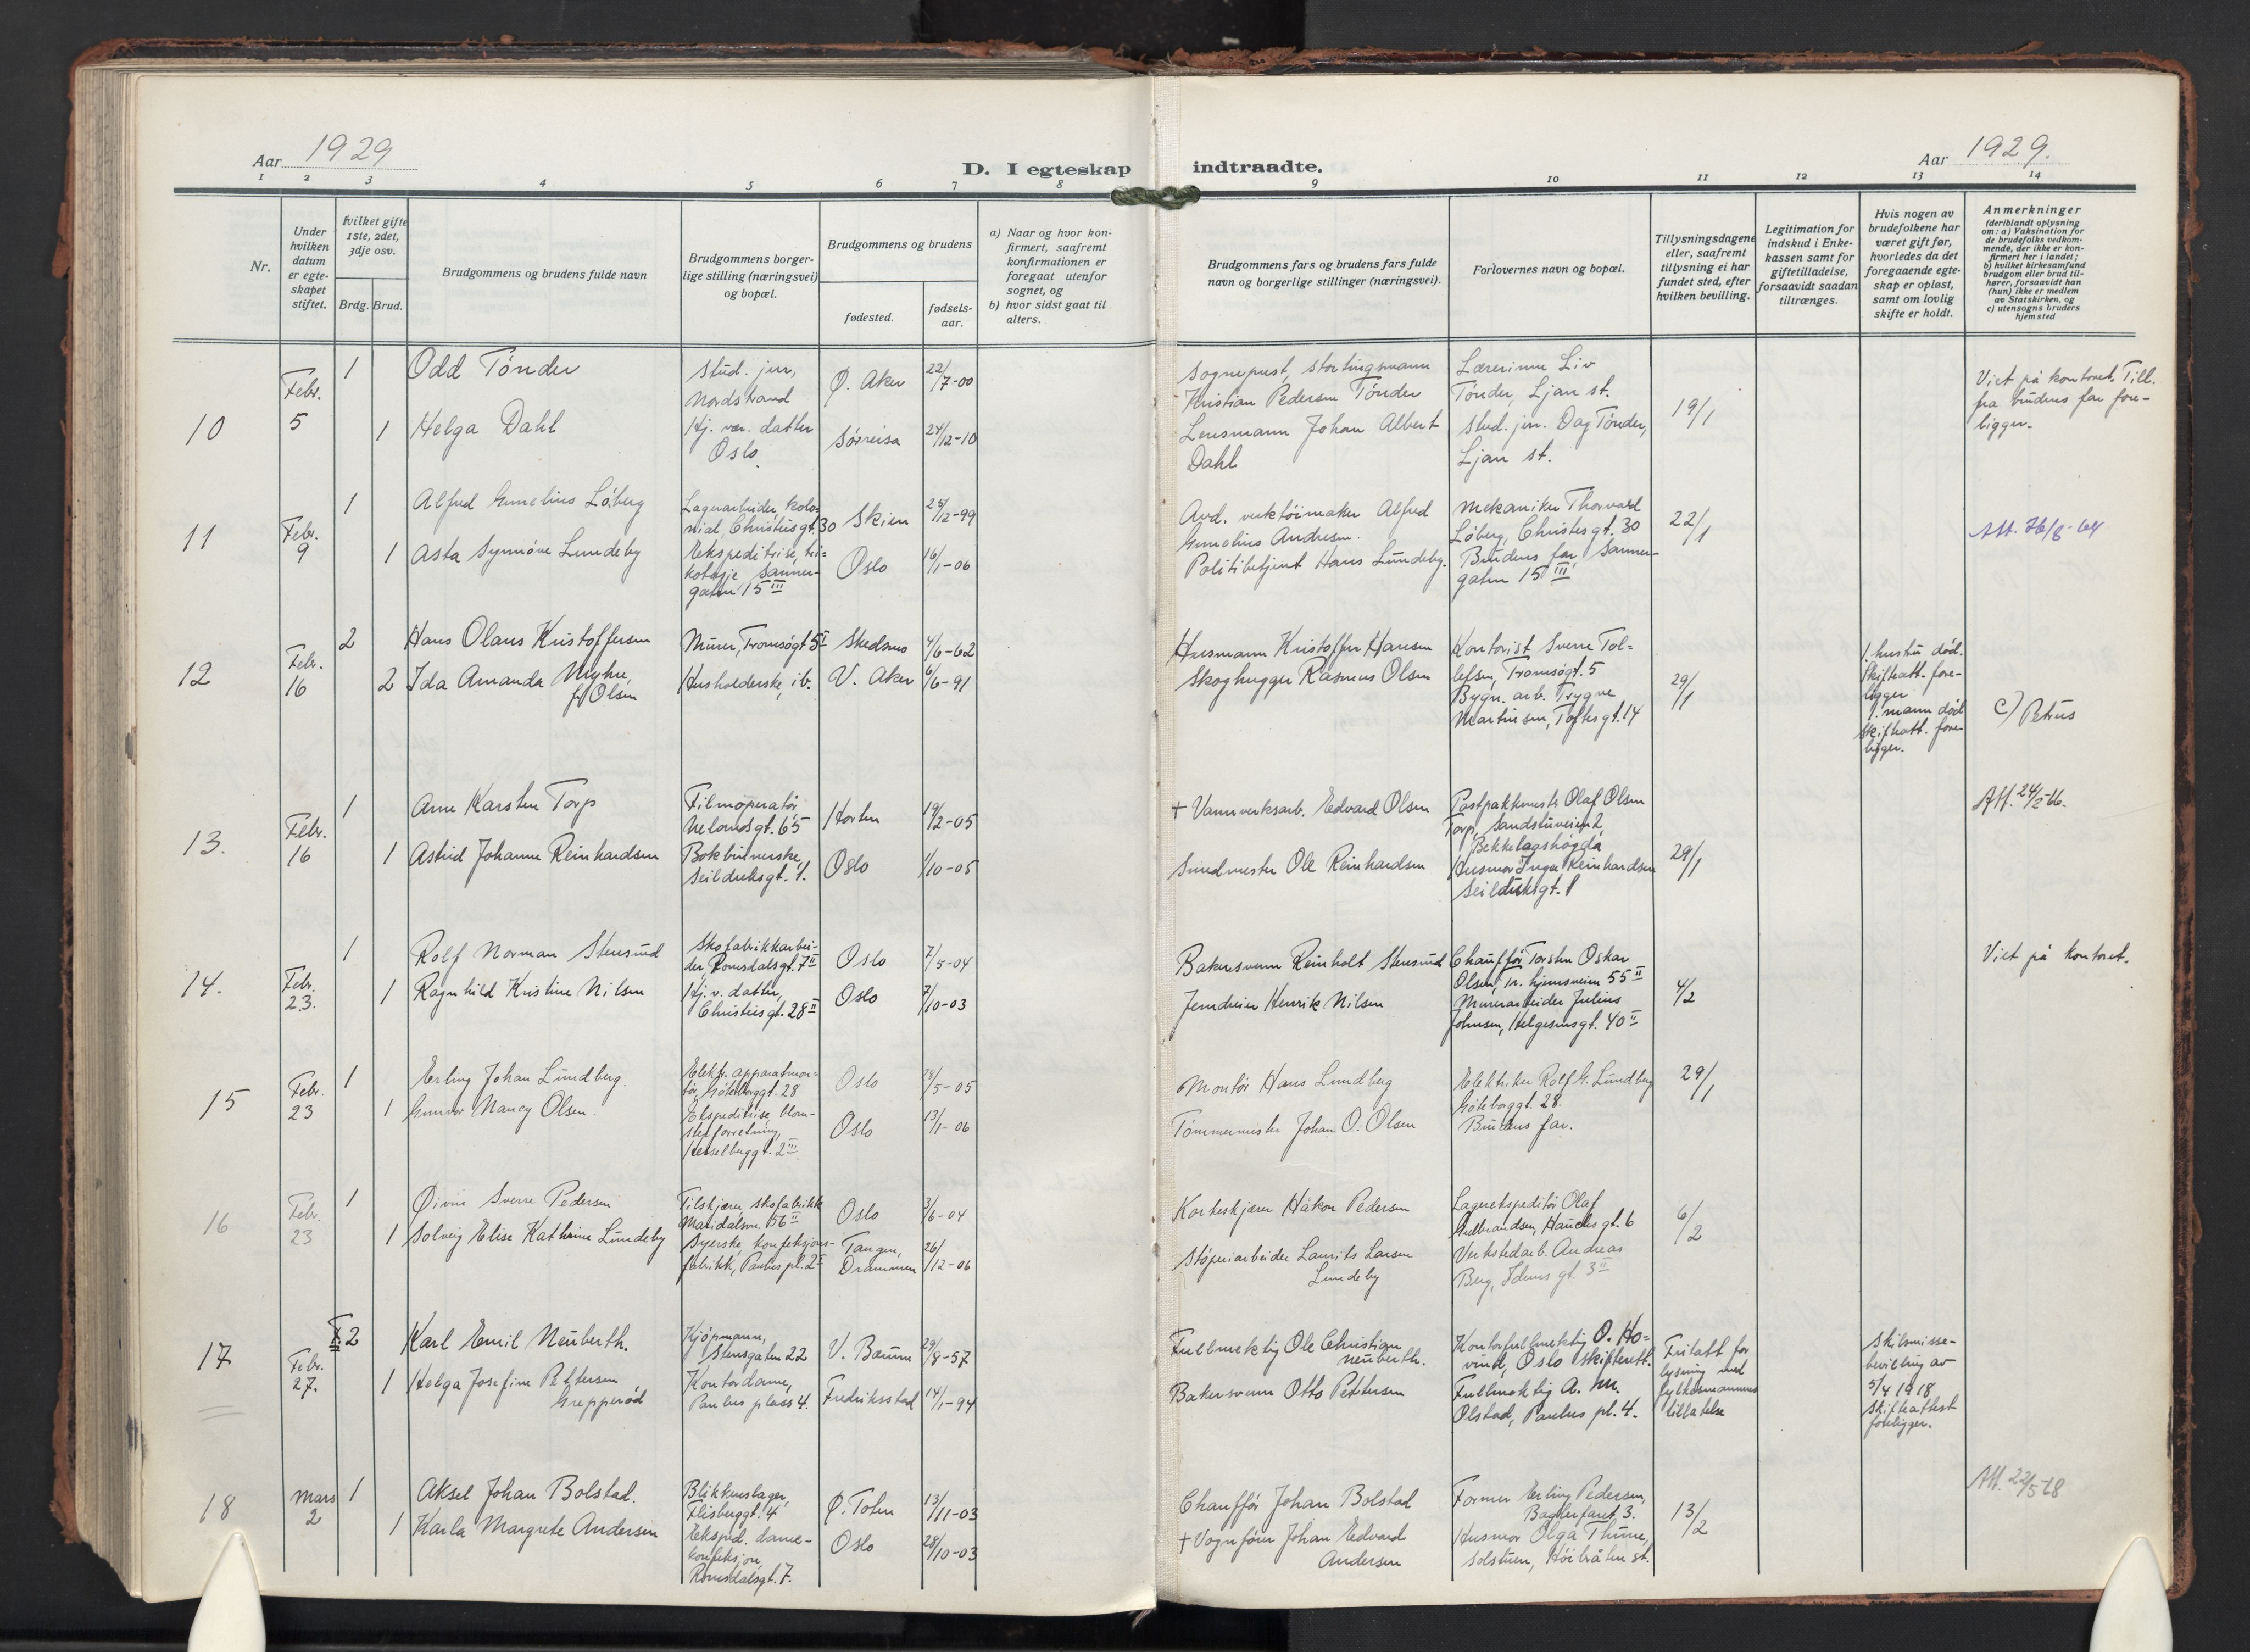 Aar 1929
D. I egteskap indtraadte.
Aar 1929.
1 2 3 4 5 6 7 8 9 10 11 12 13 14
Nr.
Under hvilken datum er egteskapet stiftet.
Hvilket gifte 1ste, 2det, 3dje osv.
Brdg. Brud.
Brudgommens og brudens fulde navn
Brudgommens borgerlige stilling (næringsvei) og bopæl.
Brudgommens og brudens
fødested.
fødselsaar.
a) Naar og hvor konfirmert, saafremt konfirmationen er foregaat utenfor sognet, og
b) hvor sidst gaat til alters.
Brudgommens fars og brudens fars fulde navn og borgerlige stillinger (næringsvei).
Forlovernes navn og bopæl.
Tillysningsdagene eller, saafremt tillysning ei har fundet sted, efter hvilken bevilling.
Legitimation for indskud i Enkekassen samt for giftetilladelse, forsaavidt saadan tiltrænges.
Hvis nogen av brudefolkene har været gift før, hvorledes da det foregaaende egteskap er opløst, samt om lovlig skifte er holdt.
Anmerkninger
(deriblandt oplysning om: a) Vaksination for de brudefolks vedkommende, der ikke er konfirmert her i landet; b) hvilket kirkesamfund brudgom eller brud tilhører, forsaavidt han (hun) ikke er medlem av Statskirken, og c) utensogns bruders hjemsted
10
Febr.
5
1 Odd Tönder
stud. jur,
Nordstrand
Ø. Aker
22/7-00
1 Helga Dahl
Hj. vær. datter
Oslo.
Sørreisa
24/12-10
Sogneprest, stortingsmann
Kristian Pedersen Tönder
Lensmann Johan Albert
Dahl
Lærerinne Liv
Tönder, Ljan st.
Stud. jur. Dag Tönder,
Ljan st.
19/1
Viet på kontoret. Till.
fra brudens far fore-
ligger.
11
Febr.
9
1 Alfred Gunelius Löberg
Lagerarbeider, kolo-
nial, Christiesgt. 30
Skien
25/12-99
1 Asta Synnöve Lundeby
Ekspeditrise, tri-
kotasje, Sanner-
gaten 15 III
Oslo
16/1-06
Avd. verktöimaker Alfred
Gunelius Andresen.
Politibetjent Hans Lundeby.
Mekaniker Thorvard
Löberg, Christiesgt. 30
Brudens far, Sanner-
gaten 15 III
22/1
Att. 26/8-64
12
Febr.
16
2 Hans Olaus Kristoffersen
Murer, Tromsögt 5 I
Skedsmo
4/6-62
2 Ida Amanda Myhre,
f. Olsen
Husholderske, ib.
V. Aker
6/6-91
Husmann Kristoffer Hansen
Skoghugger Rasmus Olsen
Kontorist Sverre Tol-
lefsen, Tromsögt. 5
Bygn. arb. Trygve
Martinsen, Toftesgt. 14
29/1
1. hustru död.
Skifteatt. fore-
ligger
1. mann död
Skifteatt. fore-
ligger.
c) Petrus
13.
Febr.
16
1 Arne Karsten Torp
Filmoperatör
Uelandsgt. 65
Horten
19/2-05
1 Astrid Johanne Reinhardsen
Bokbinnerske,
Seilduksgt. 1.
Oslo
1/10-05
+ Vannverksarb. Edvard Olsen
Smedmester Ole Reinhardsen
Postpakkmester Olaf Olsen
Torp, Sandstuveien 2,
Bekkelagshögda
Husmor Inga Reinhardsen
Seilduksgt. 1
29/1
Att. 24/2-66.
14.
Febr.
23.
1 Rolf Norman Stensrud
Skofabrikkarbei-
der, Romsdalsgt. 7 II
Oslo
7/5-04
1 Ragnhild Kristine Nilsen
Hj. v. datter,
Christiesgt. 28 II
Oslo
7/10-03
Bakersvenn Reinholt Stensrud
Jerndreier Henrik Nilsen
Chaufför Torsten Oskar
Olsen, Tr. hjemsveien 55 II
Murerarbeider Julius
Johnsen, Helgesensgt. 40 II
4/2
Viet på kontoret.
15
Febr.
23
1 Erling Johan Lundberg.
Elektr. apparatmon-
tör, Göteborggt. 28
Oslo
28/5-05
1 Gunvor Nancy Olsen.
Ekspeditrise blom-
sterforretning,
Hesselberggt. 2 III
Oslo
13/1-06
Montör Hans Lundberg
Tömmermester Johan O. Olsen
Elektriker Rolf G. Lundberg
Göteborggt. 28.
Brudens far.
29/1
16
Febr.
23
1 Øivin Sverre Pedersen
Tilskjærer, skofabrikk
Maridalsvn. 56 II
Oslo
3/6-04
1 Solveig Elise Kathrine Lundeby
Syerske, konfeksjons-
fabrikk, Paulus pl. 2 I
Tangen,
Drammen
26/12-06
Korkeskjærer Håkon Pedersen
Støperiarbeider Laurits Larsen
Lundeby
Lagerekspeditör Olaf
Gulbrandsen, Hauchs gt. 6
Verkstedarb. Andreas
Berg, Iduns gt. 3 II
6/2
17
Febr.
27.
F. 2 Karl Emil Neuberth.
Kjöpmann,
Stensgaten 22
V. Bærum
29/8-57
1 Helga Josefine Pettersen
Grepperød
Kontordame,
Paulus plass 4.
Fredriksstad
14/1-94
Fullmektig Ole Christian
Neuberth.
Bakersvenn Otto Pettersen
Kontorfullmektig O. Ho-
vind, Oslo skifterett.
Fullmektig A. M.
Olstad, Paulus pl. 4.
Fritatt for
lysning med
fylkesmannens
tillatelse
Skilsmisse-
bevilling av
5/4 1918
Skifteattest
foreligger.
18
Mars
2
1 Aksel Johan Bolstad.
Blikkenslager,
Flisberggt. 4
Ø. Toten
13/11-03
1 Karla Margrete Andersen
Eksped. dame-
konfeksjon,
Romsdalsgt. 7.
Oslo
28/10-03
Chaufför Johan Bolstad
+ Vognförer Johan Edvard
Andersen
Former Erling Pedersen,
Baglerfaret 3.
Husmor Olga Thune,
Solstuen, Høibråten st.
13/2
Att. 22/5-68